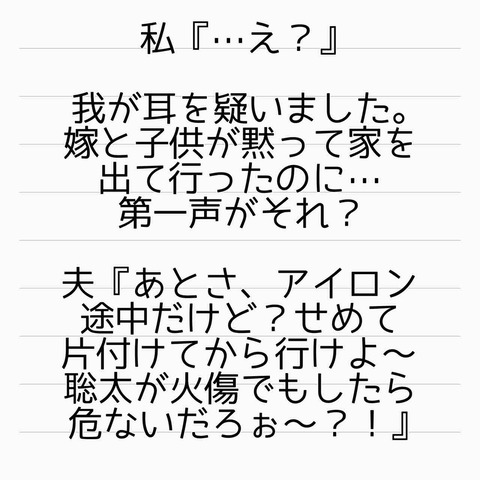 私『…え？』
我が耳を疑いました。
嫁と子供が黙って家を
出て行ったのに…
第一声がそれ？
夫『あとさ、アイロン
途中だけど？せめて
片付けてから行けよ～
聡太が火傷でもしたら
危ないだろぉ～？！』